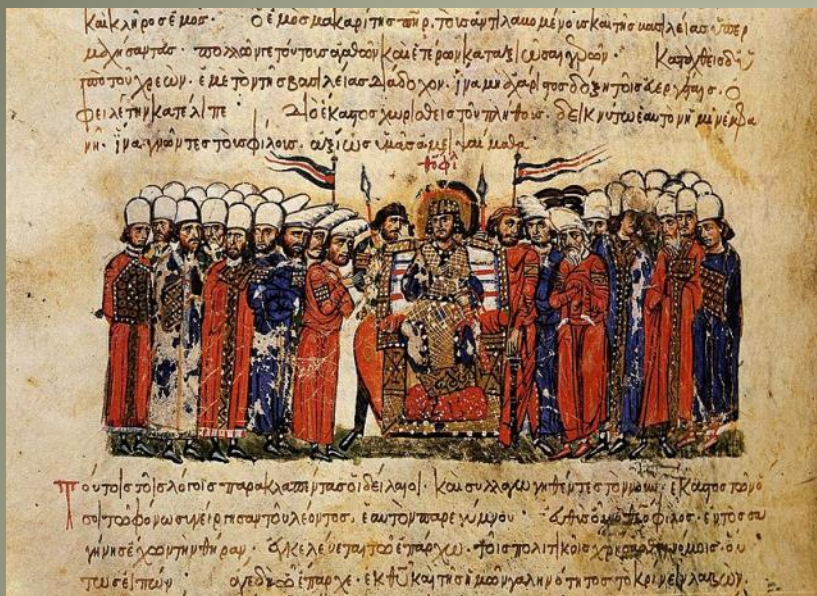 καὶ κλῆρος ἐμὸς. ὁ ἐμὸς μακαρίτης πηρ. τοῖς ἀντιλαμομένοις καὶ τῆς βασιλείας ὑπερ
μαχήσαντας. πολλῶν γε τούτοις ἀγαθῶν καὶ ἑτέρων καταξιῶσαι
πὸ τοῦ χρεών. ἐμὲ τὸν τῆς βασιλείας διάδοχον. ἵνα μὴ ἀχάριστος δόξῃ τοῖς εὐεργέταις. ὀ
φειλέτην κατέλιπε διὸ ἕκαστος χωρισθεὶς τοῦ πλήθους. δεικνύτω ἑαυτὸν ἡμῖν ἐμφα
νῆ. ἵνα γνῶντες τοὺς φίλους. ἀξίως ὑμᾶς
θεόφι
Τούτοις τοῖς λόγοις παρακλαπέντας οἱ δείλαιοι. καὶ συλλαγωγηθέντες τὸν νοῦν. ἕκαστος τῶν ὅ
σοι τὸν φόνον συνείργησαν τοῦ λέοντος. ἑαυτὸν παρεγύμνου. ὁ θεόφιλος. ἐντὸς σα
γήνης ἔχων τὴν θήραν. διακελεύεται τῷ ἐπάρχῳ. τοῖς πολιτικοῖς χρήσασθαι νόμοις. οὕ
τωσεἰπών ἄγε δὴ ὦ ἔπαρχε. ἐκ θυ καὶ τῆς ἡμῶν γαληνότητος τὸ κρίνειν λαβών.